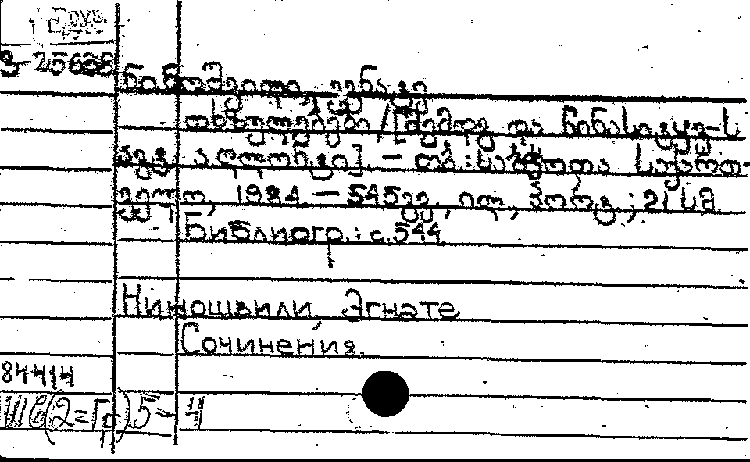 Груз.
3-25688
ნინოშვილი, ეგნატე
თხზულებანი / [შემდგ. და წინასიტყვ-ს
ავტ. ა. ] – თბ.: საბჭოთა საქართ-
ველო, 1984 – 545გვ., ილ., პორტ.; 21 სმ.
Библиогр.: с. 544
Ниношвили, Эгнате
Сочинения.
84414
(2=Гр)5-4